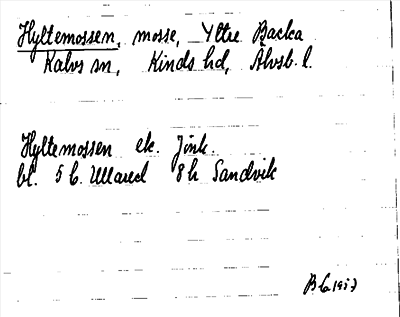 Hyltemossen, mosse, Yttre Backa
Kalvs sn, Kinds hd, Älvsb. l.
Hyltemossen ek.
bl. 5 b. Ullared 8 h Sandvik